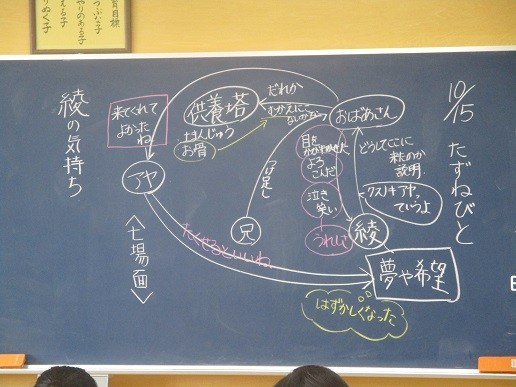 10/15
たずねびと
おばあさん
どうしてここに
来たのか
説明
クスノキアヤっ
ていうよ
綾
夢や希望
はずかしくなった
目を
かがやかせた
よろ
こんだ
泣き
笑い
うれしい
だれか
むかえにこ
ないかな
供養塔
土まんじゅう
お骨
つけ足し
兄
来てくれて
よかった
ね
アヤ
たくせるといいね
〈七場面〉
綾の気持ち
育目標
つぶな子
やりのある子
える子
りぬく子